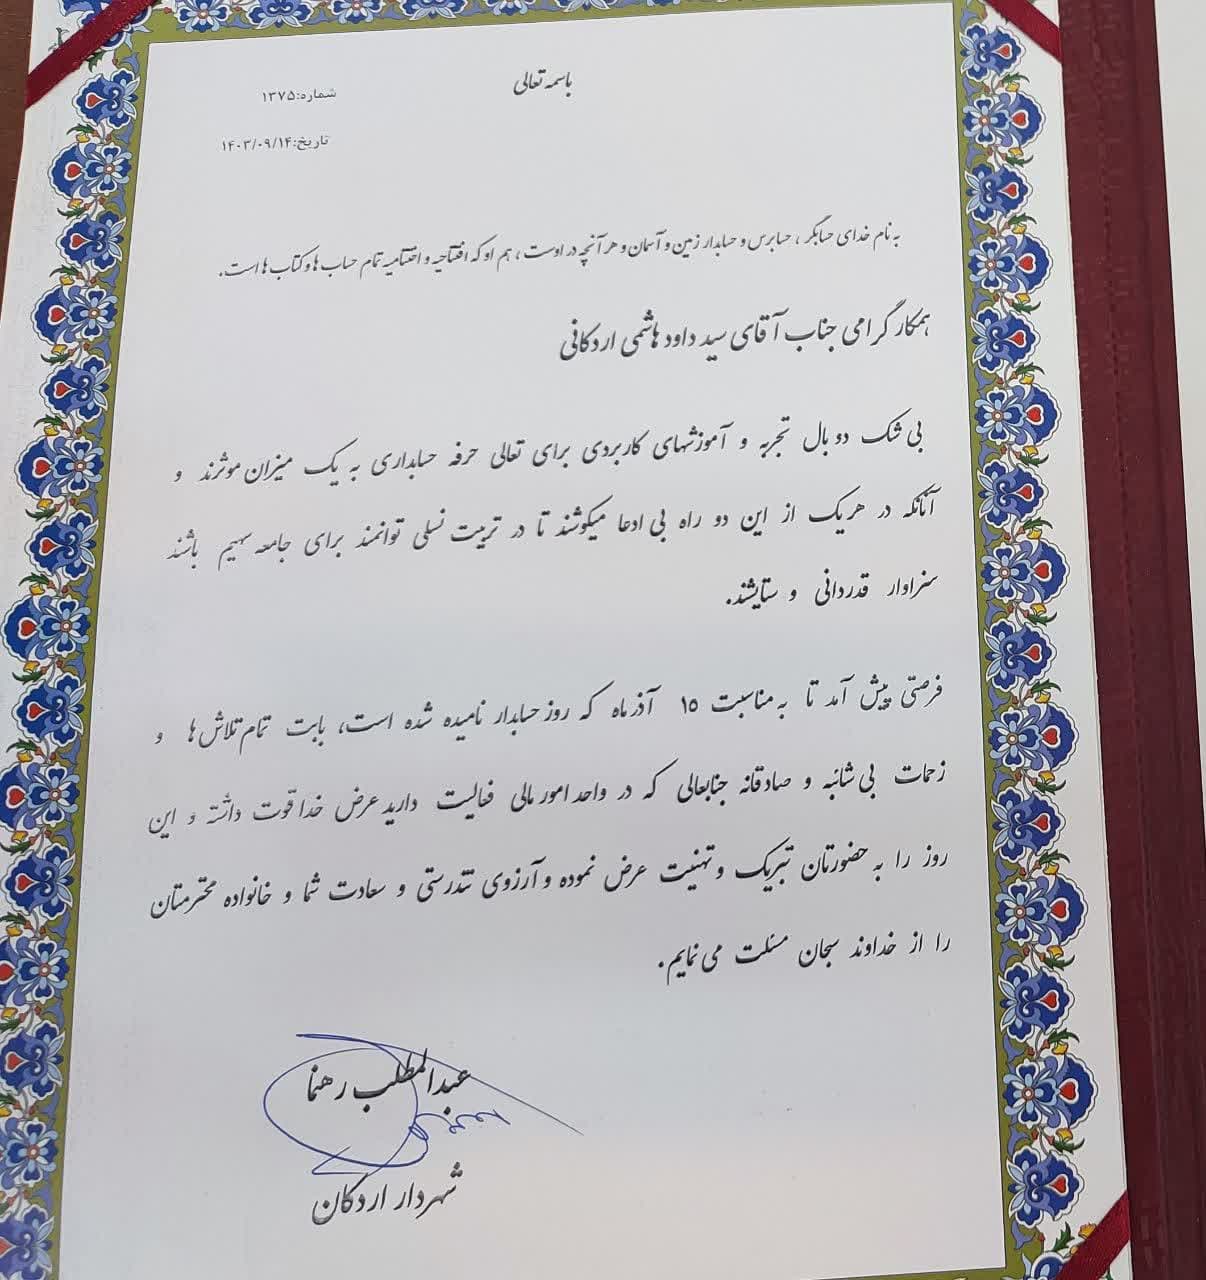 باسمه تعالی
شماره:۱۳۷۵
تاریخ:۱۴۰۳/۰۹/۱۴
به نام خدای حسابگر ، حسابرس و حسابدار زمین و آسمان و هر آنچه در اوست ، هم او که افتتاحیه و اختتامیه تمام حساب ها و کتاب ها است.
همکار گرامی جناب آقای سید داود هاشمی اردکانی
بی شک دو بال تجربه و آموزشهای کاربردی برای تعالی حرفه حسابداری به یک میزان موثرند و
آنانکه در هر یک از این دو راه بی ادعا میکوشند تا در تربیت نسلی توانمند برای جامعه سهیم باشند
سزاوار قدردانی و ستایشند.
فرصتی پیش آمد تا به مناسبت ۱۵ آذر ماه که روز حسابدار نامیده شده است، بابت تمام تلاش ها و
زحمات بی شائبه و صادقانه جنابعالی که در واحد امور مالی فعالیت دارید عرض خدا قوت داشته و این
روز را به حضورتان تبریک و تهنیت عرض نموده و آرزوی تندرستی و سعادت شما و خانواده محترمتان
را از خداوند سبحان مسئلت می نمایم.
عبدالمطلب رهنما
شهردار اردکان